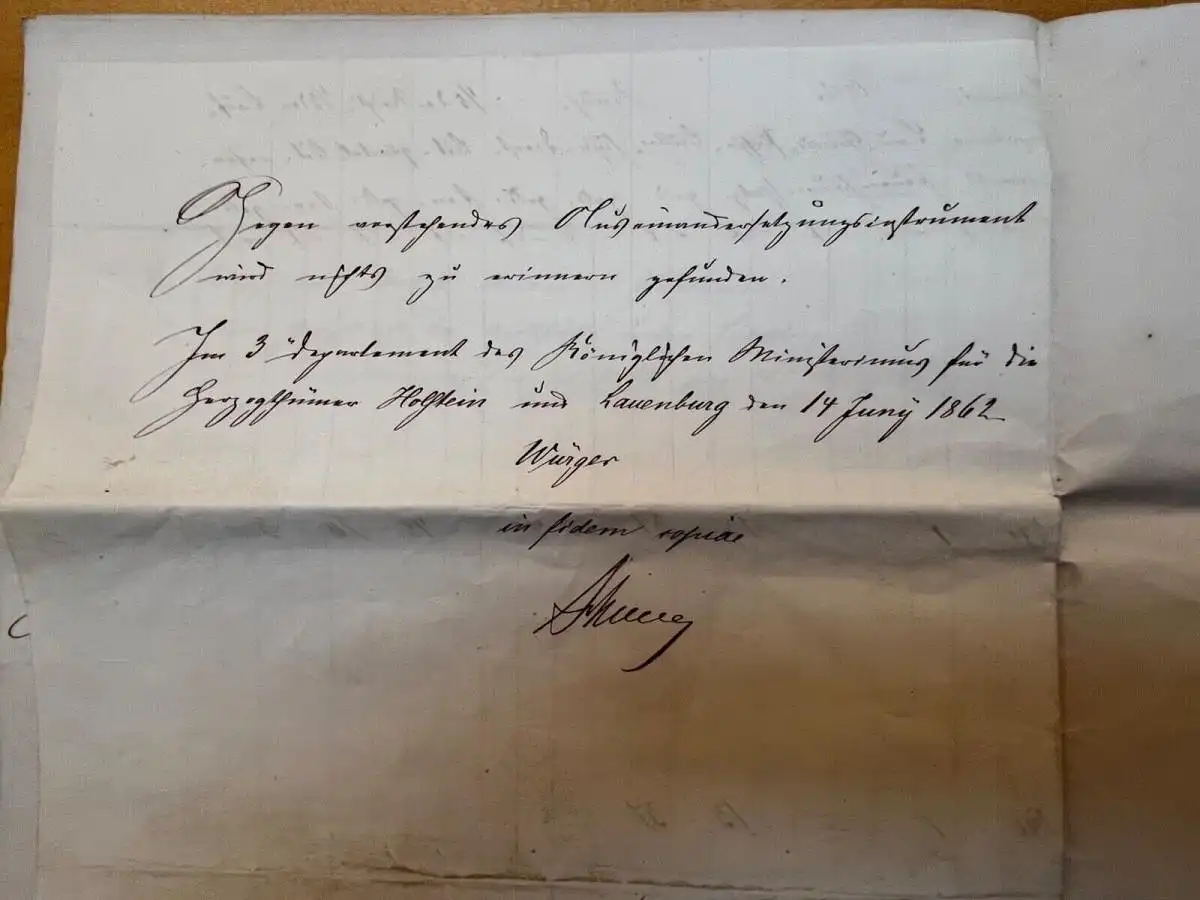 Gegen vorstehendes Auseinandersetzungsinstrument
wird nichts zu erinnern gefunden.
Im 3 Departement des Königlichen Ministeriums für die
Herzogthümer Holstein und Lauenburg den 14 Juny 1862
Würger
in fidem copiae